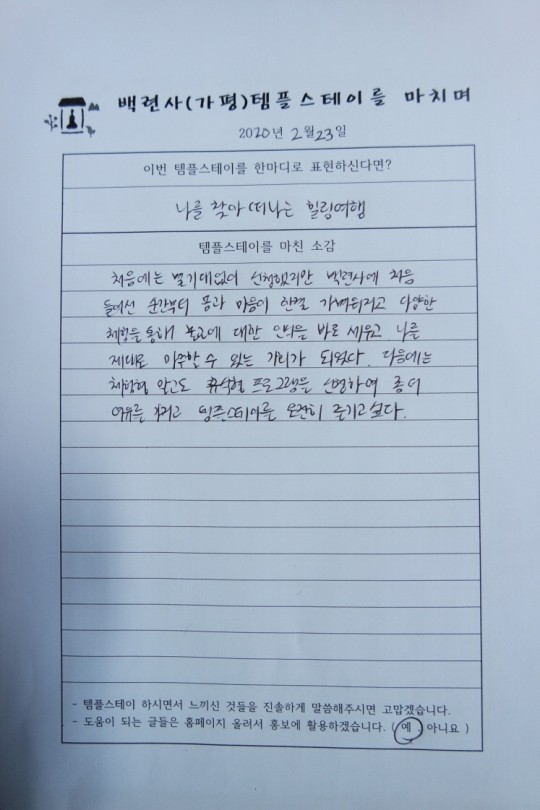 백련사(가평)템플스테이를 마치며
2020년 2월 23일
이번 템플스테이를 한마디로 표현하신다면?
나를 찾아 떠나는 힐링여행
템플스테이를 마친 소감
처음에는 별기대없이 신청했지만 백련사에 처음
들어선 순간부터 몸과 마음이 한결 가벼워지고 다양한
체험을 통해 불교에 대한 인식을 바로 세우고 나를
제대로 마주할 수 있는 기회가 되었다. 다음에는
체험형 말고도 휴식형 프로그램을 신청하여 좀 더
여유를 가지고 템플스테이를 온전히 즐기고 싶다.
- 템플스테이 하시면서 느끼신 것들을 진솔하게 말씀해주시면 고맙겠습니다.
- 도움이 되는 글들은 홈페이지 올려서 홍보에 활용하겠습니다. ( 예 , 아니요 )